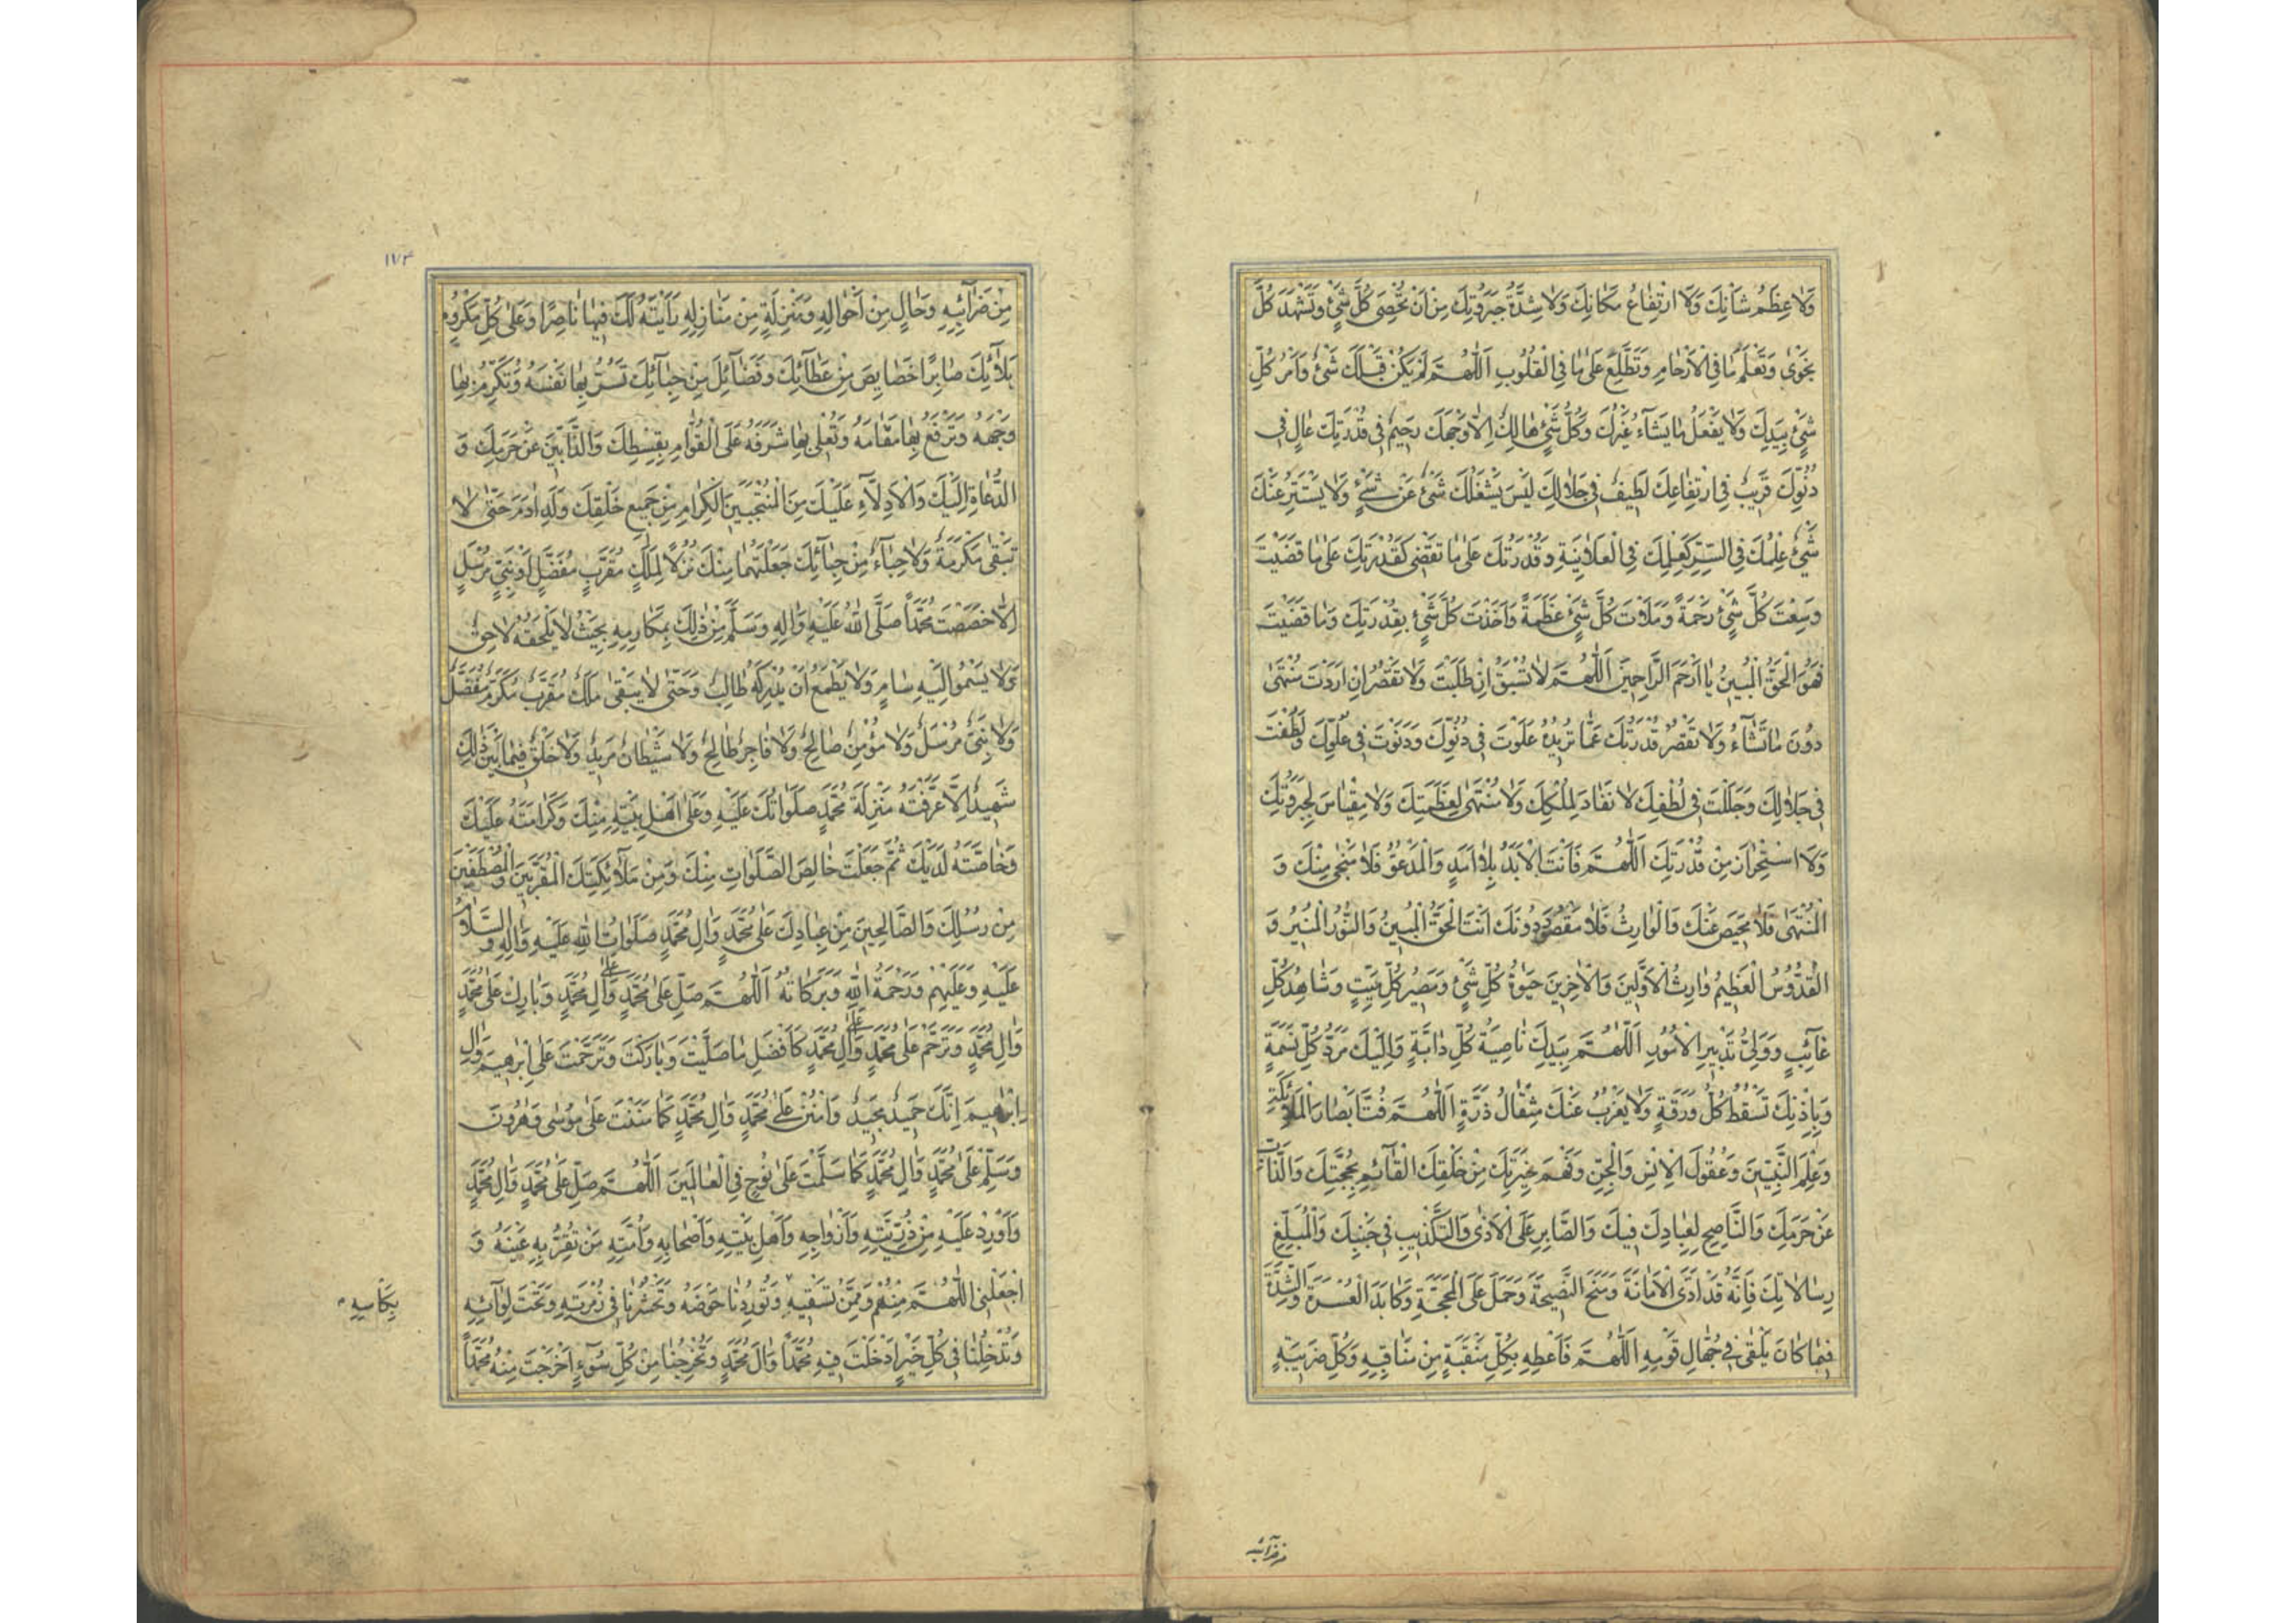 وَلَا عِظَمُ شَانِكَ وَلَا ارْتِفَاعُ مَكَانِكَ وَلَا شِدَّةُ جَبَرُوتِكَ مِنْ اَنْ تُحْصِیَ كُلَّ شَیْءٍ وَتَشْهَدَ كُلَّ
نَجْوٰی وَتَعْلَمَ مَا فِی الْاَرْحَامِ وَتَطَّلِعَ عَلٰی مَا فِی الْقُلُوبِ اَللّٰهُمَّ لَمْ یَكُنْ قَبْلَكَ شَیْءٌ وَاَمْرُ كُلِّ
شَیْءٍ بِیَدِكَ وَلَا یَفْعَلُ مَا یَشَآءُ غَیْرُكَ وَكُلُّ شَیْءٍ هَالِكٌ اِلَّا وَجْهَكَ رَحِیمٌ فِی قُدْرَتِكَ عَالٍ فِی
دُنُوِّكَ قَرِیبٌ فِی ارْتِفَاعِكَ لَطِیفٌ فِی جَلَالِكَ لَیْسَ یَشْغَلُكَ شَیْءٌ عَنْ شَیْءٍ وَلَا یَسْتَتِرُ عَنْكَ
شَیْءٌ عِلْمُكَ فِی السِّتْرِ كَعِلْمِكَ فِی الْعَلَانِیَةِ وَقُدْرَتُكَ عَلٰی مَا تَقْضِی كَقُدْرَتِكَ عَلٰی مَا قَضَیْتَ
وَسِعْتَ كُلَّ شَیْءٍ رَحْمَةً وَمَلَاْتَ كُلَّ شَیْءٍ عَظَمَةً وَاَخَذْتَ كُلَّ شَیْءٍ بِقُدْرَتِكَ وَمَا قَضَیْتَ
فَهُوَ الْحَقُّ الْمُبِینُ یَا اَرْحَمَ الرَّاحِمِینَ اَللّٰهُمَّ لَا تُسْبَقُ اِنْ طَلَبْتَ وَلَا تَقْصُرُ اِنْ اَرَدْتَ مُنْتَهٰی
دُونَ مَا تَشَآءُ وَلَا تَقْصُرُ قُدْرَتُكَ عَمَّا تُرِیدُ عَلَوْتَ فِی دُنُوِّكَ وَدَنَوْتَ فِی عُلُوِّكَ وَلَطُفْتَ
فِی جَلَالِكَ وَجَلَلْتَ فِی لُطْفِكَ لَا نَفَادَ لِمُلْكِكَ وَلَا مُنْتَهٰی لِعَظَمَتِكَ وَلَا مِقْیَاسَ لِجَبَرُوتِكَ
وَلَا اسْتِحْرَازَ مِنْ قُدْرَتِكَ اَللّٰهُمَّ فَاَنْتَ الْاَبَدُ بِلَا اَمَدٍ وَالْمَدْعُوُّ فَلَا مَنْجٰی مِنْكَ وَ
الْمُنْتَهٰی فَلَا مَحِیصَ عَنْكَ وَالْوَارِثُ فَلَا مَقْصَرَ دُونَكَ اَنْتَ الْحَقُّ الْمُبِینُ وَالنُّورُ الْمُنِیرُ وَ
الْقُدُّوسُ الْعَظِیمُ وَارِثُ الْاَوَّلِینَ وَالْاٰخِرِینَ حَیٰوةُ كُلِّ شَیْءٍ وَمَصِیرُ كُلِّ مَیِّتٍ وَشَاهِدُ كُلِّ
غَآئِبٍ وَوَلِیُّ تَدْبِیرِ الْاُمُورِ اَللّٰهُمَّ بِیَدِكَ نَاصِیَةُ كُلِّ دَابَّةٍ وَاِلَیْكَ مَرَدُّ كُلِّ نَسَمَةٍ
وَبِاِذْنِكَ تَسْقُطُ كُلُّ وَرَقَةٍ وَلَا یَعْزُبُ عَنْكَ مِثْقَالُ ذَرَّةٍ اَللّٰهُمَّ فُتَّ اَبْصَارَ الْمَلَائِكَةِ
وَعِلْمَ النَّبِیِّینَ وَعُقُولَ الْاِنْسِ وَالْجِنِّ وَفَهْمَ خِیَرَتِكَ مِنْ خَلْقِكَ الْقَآئِمِ بِحُجَّتِكَ وَالذَّآبِّ
عَنْ حَرَمِكَ وَالنَّاصِحِ لِعِبَادِكَ فِیكَ وَالصَّابِرِ عَلَی الْاَذٰی وَالتَّكْذِیبِ فِی جَنْبِكَ وَالْمُبَلِّغِ
رِسَالَاتِكَ فَاِنَّهُ قَدْ اَدَّی الْاَمَانَةَ وَمَنَحَ النَّصِیحَةَ وَحَمَلَ عَلَی الْمَحَجَّةِ وَكَابَدَ الْعُسْرَةَ وَالشِّدَّةَ
فِیمَا كَانَ یَلْقٰی فِی جُهَّالِ قَوْمِهِ اَللّٰهُمَّ فَاَعْطِهِ بِكُلِّ مَنْقَبَةٍ مِنْ مَنَاقِبِهِ وَكُلِّ ضَرِیبَةٍ
من ضرآئبه
١٧٣
مِنْ ضَرَآئِبِهِ وَحَالٍ مِنْ اَحْوَالِهِ وَمَنْزِلَةٍ مِنْ مَنَازِلِهِ رَاَیْتَهُ لَكَ فِیهَا نَاصِرًا وَعَلٰی كُلِّ مَكْرُوهِ
بَلَآئِكَ صَابِرًا خَصَایِصَ مِنْ عَطَآئِكَ وَفَضَآئِلَ مِنْ حِبَآئِكَ تَسُرُّ بِهَا نَفْسَهُ وَتُكَرِّمُ بِهَا
وَجْهَهُ وَتَرْفَعُ بِهَا مَقَامَهُ وَتُعْلِی بِهَا شَرَفَهُ عَلَی الْقُوَّامِ بِقِسْطِكَ وَالذَّابِّینَ عَنْ حَرَمِكَ وَ
الدُّعَاةِ اِلَیْكَ وَالْاَدِلَّآءِ عَلَیْكَ مِنَ الْمُنْتَجَبِینَ الْكِرَامِ مِنْ جَمِیعِ خَلْقِكَ وَلَدِ اٰدَمَ حَتّٰی لَا
تَبْقٰی مَكْرُمَةٌ وَلَا حِبَآءٌ مِنْ حِبَآئِكَ جَعَلْتَهُمَا مِنْكَ نُزُلًا لِمَلَكٍ مُقَرَّبٍ مُفَضَّلٍ اَوْ نَبِیٍّ مُرْسَلٍ
اِلَّا خَصَصْتَ مُحَمَّدًا صَلَّی اللّٰهُ عَلَیْهِ وَاٰلِهِ وَسَلَّمَ مِنْ ذٰلِكَ بِمَكَارِمِهِ بِحَیْثُ لَا یَلْحَقُهُ لَاحِقٌ
وَلَا یَسْمُوا اِلَیْهِ سَامٍ وَلَا یَطْمَعُ اَنْ یُدْرِكَهُ طَالِبٌ وَحَتّٰی لَا یَبْقٰی مَلَكٌ مُقَرَّبٌ مُكَرَّمٌ مُفَضَّلٌ
وَلَا نَبِیٌّ مُرْسَلٌ وَلَا مُؤْمِنٌ صَالِحٌ وَلَا فَاجِرٌ طَالِحٌ وَلَا شَیْطَانٌ مَرِیدٌ وَلَا خَلْقٌ فِیمَا بَیْنَ ذٰلِكَ
شَهِیدٌ اِلَّا عَرَّفْتَهُ مَنْزِلَةَ مُحَمَّدٍ صَلَوَاتُكَ عَلَیْهِ وَعَلٰی اَهْلِ بَیْتِهِ مِنْكَ وَكَرَامَتَهُ عَلَیْكَ
وَخَاصَّتَهُ لَدَیْكَ ثُمَّ جَعَلْتَ خَالِصَ الصَّلَوَاتِ مِنْكَ وَمِنْ مَلَآئِكَتِكَ الْمُقَرَّبِینَ وَالْمُصْطَفَیْنَ
مِنْ رُسُلِكَ وَالصَّالِحِینَ مِنْ عِبَادِكَ عَلٰی مُحَمَّدٍ وَاٰلِ مُحَمَّدٍ صَلَوَاتُ اللّٰهِ عَلَیْهِ وَاٰلِهِ وَالسَّلَامُ
عَلَیْهِ وَعَلَیْهِمْ وَرَحْمَةُ اللّٰهِ وَبَرَكَاتُهُ اَللّٰهُمَّ صَلِّ عَلٰی مُحَمَّدٍ وَعَلٰی اٰلِ مُحَمَّدٍ وَبَارِكْ عَلٰی مُحَمَّدٍ
وَاٰلِ مُحَمَّدٍ وَتَرَحَّمْ عَلٰی مُحَمَّدٍ وَعَلٰی اٰلِ مُحَمَّدٍ كَاَفْضَلِ مَا صَلَّیْتَ وَبَارَكْتَ وَتَرَحَّمْتَ عَلٰی اِبْرٰهِیمَ وَاٰلِ
اِبْرٰهِیمَ اِنَّكَ حَمِیدٌ مَجِیدٌ وَامْنُنْ عَلٰی مُحَمَّدٍ وَاٰلِ مُحَمَّدٍ كَمَا مَنَنْتَ عَلٰی مُوسٰی وَهٰرُونَ
وَسَلِّمْ عَلٰی مُحَمَّدٍ وَاٰلِ مُحَمَّدٍ كَمَا سَلَّمْتَ عَلٰی نُوحٍ فِی الْعَالَمِینَ اَللّٰهُمَّ صَلِّ عَلٰی مُحَمَّدٍ وَاٰلِ مُحَمَّدٍ
وَاَوْرِدْ عَلَیْهِ مِنْ ذُرِّیَّتِهِ وَاَزْوَاجِهِ وَاَهْلِ بَیْتِهِ وَاَصْحَابِهِ وَاُمَّتِهِ مَنْ تُقِرُّ بِهِ عَیْنَهُ وَ
اجْعَلْنِی اللّٰهُمَّ مِنْهُمْ وَمِمَّنْ تَسْقِیهِ وَتُورِدُنَا حَوْضَهُ وَتَحْشُرُنَا فِی زُمْرَتِهِ وَتَحْتَ لِوَآئِهِ
بِكَاْسِهِ
وَتُدْخِلُنَا فِی كُلِّ خَیْرٍ اَدْخَلْتَ فِیهِ مُحَمَّدًا وَاٰلَ مُحَمَّدٍ وَتُخْرِجُنَا مِنْ كُلِّ سُوٓءٍ اَخْرَجْتَ مِنْهُ مُحَمَّدًا